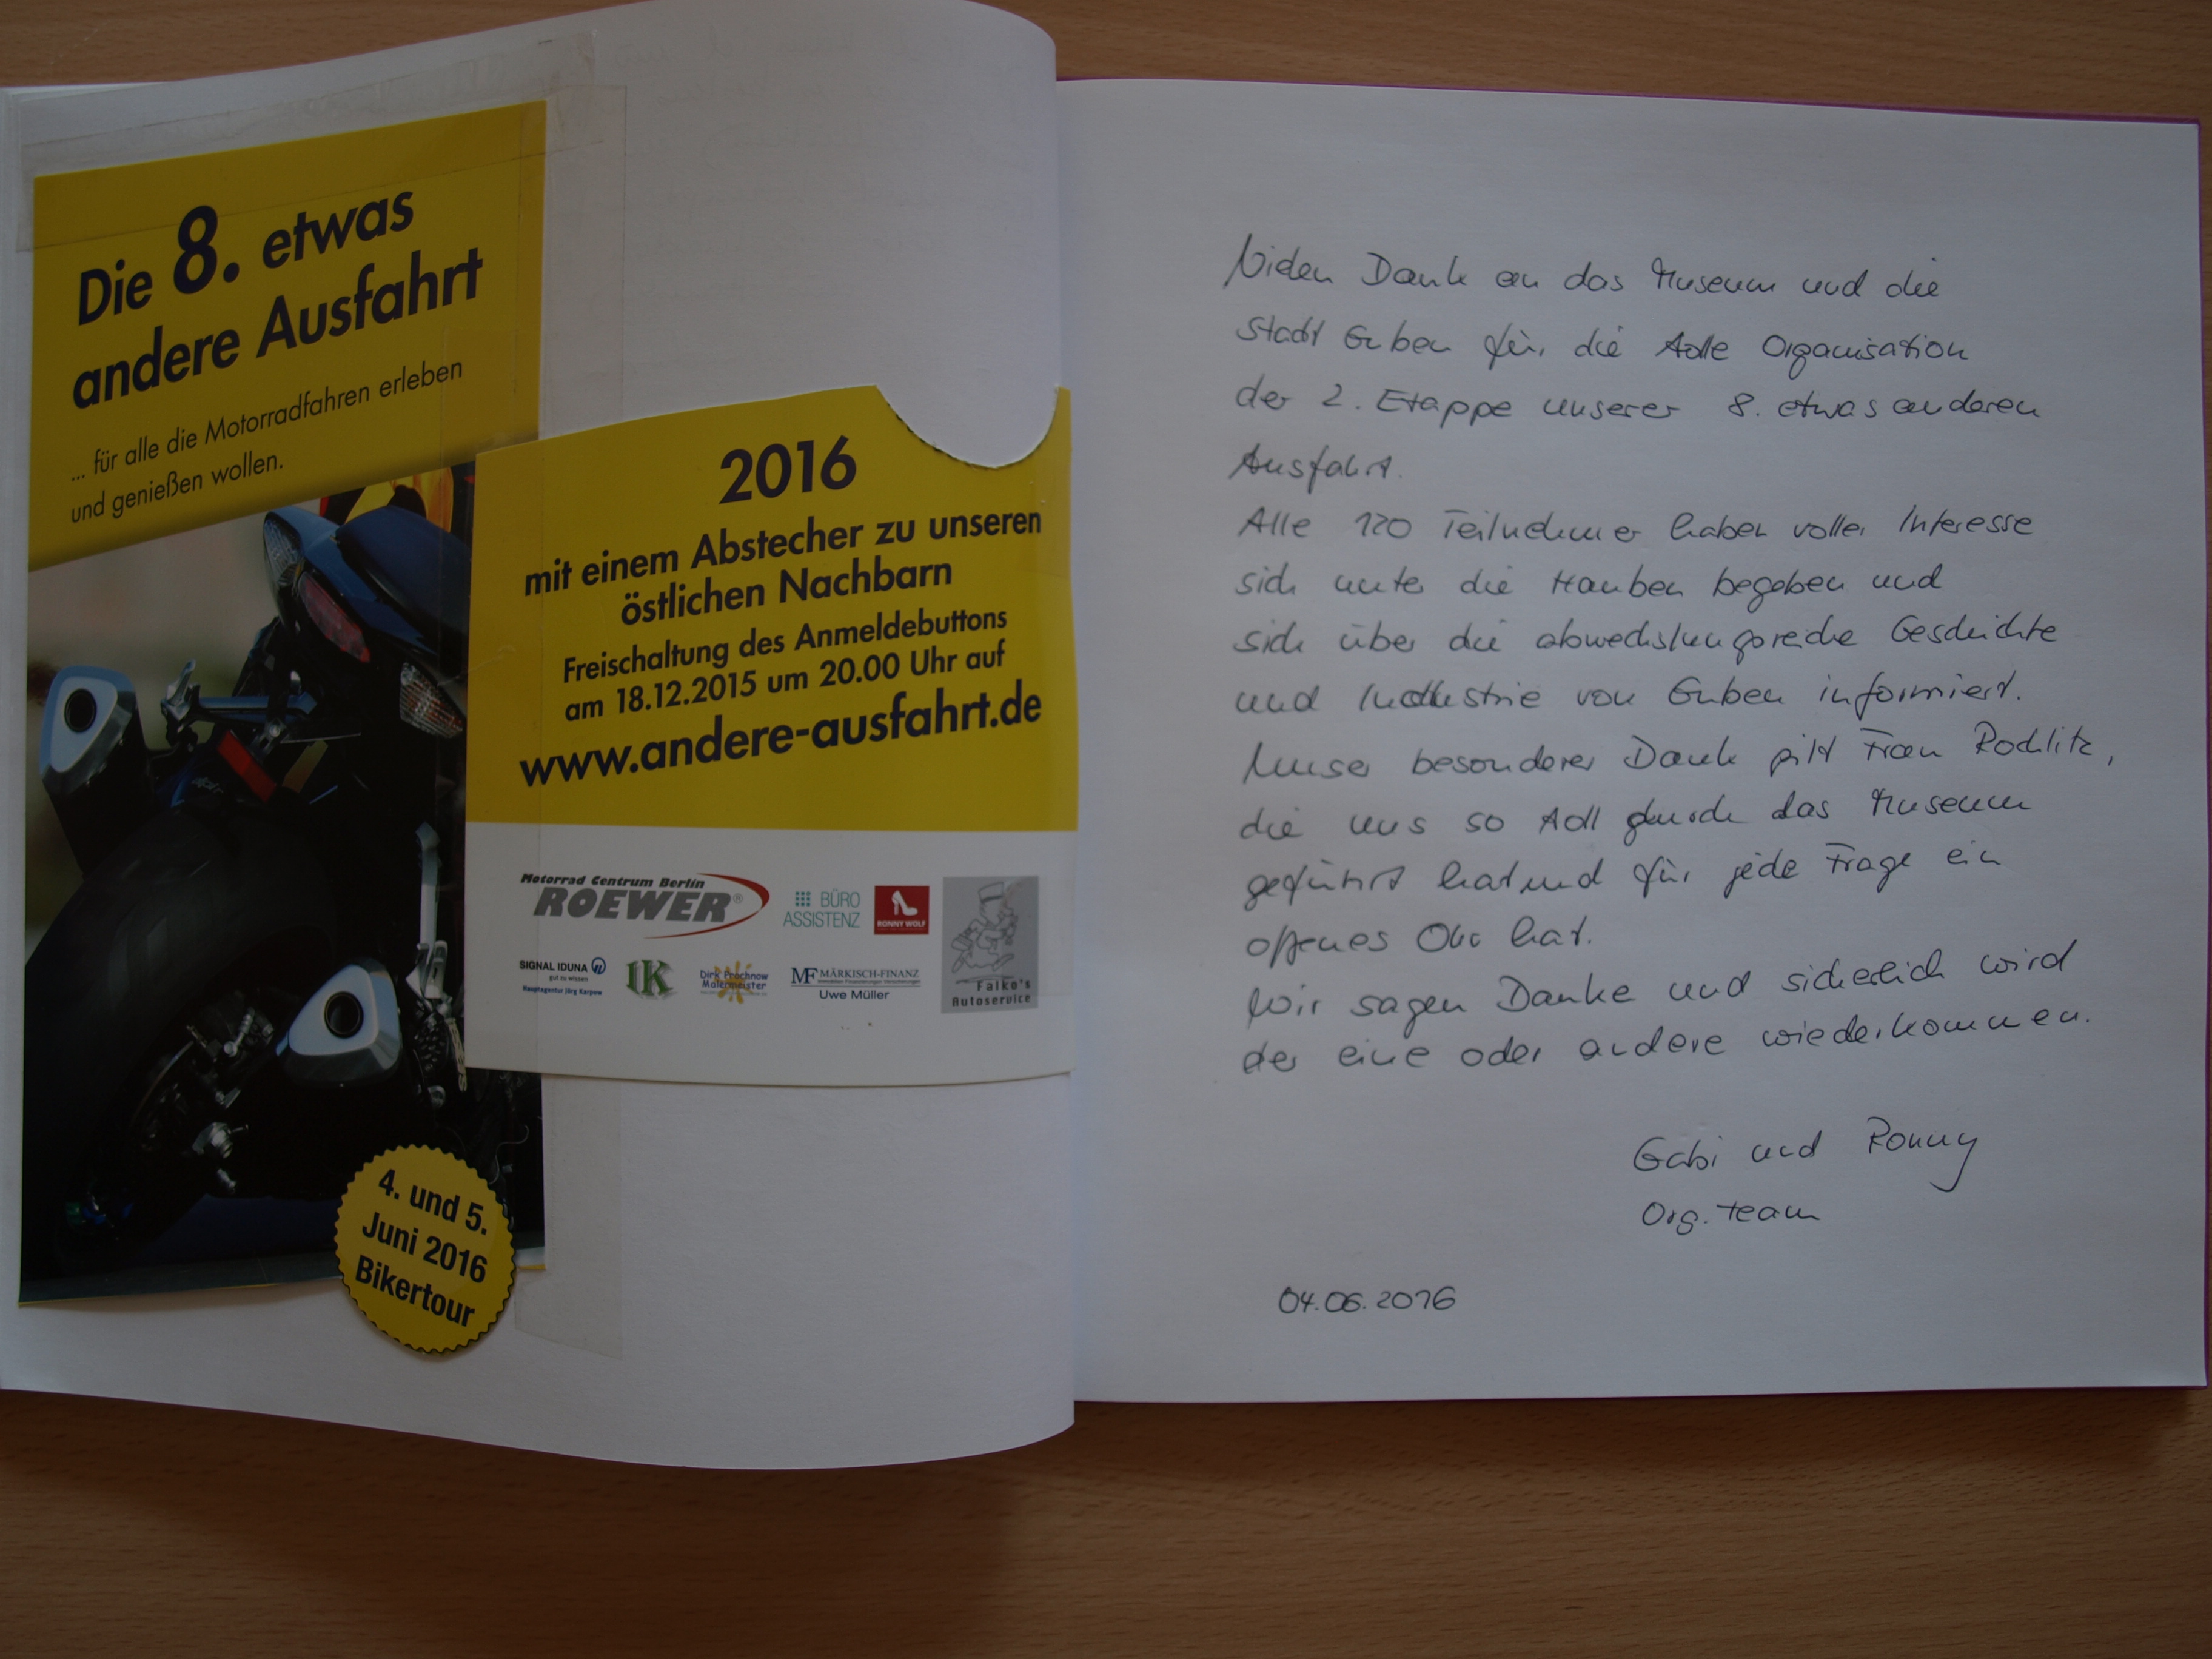 Die 8. etwas
andere Ausfahrt
... für alle die Motorradfahren erleben
und genießen wollen.
4. und 5.
Juni 2016
Bikertour
2016
mit einem Abstecher zu unseren
östlichen Nachbarn
Freischaltung des Anmeldebuttons
am 18.12.2015 um 20.00 Uhr auf
www.andere-ausfahrt.de
Motorrad Centrum Berlin
ROEWER®
BÜRO
ASSISTENZ
RONNY WOLF
SIGNAL IDUNA
gut zu wissen
Hauptagentur Jörg Karpow
1K
Dirk Prochnow
Malermeister
MF MÄRKISCH-FINANZ
Immobilien Finanzierungen Versicherungen
Uwe Müller
Falke's
Autoservice
Vielen Dank an das Museum und die
Stadt Guben für die tolle Organisation
der 2. Etappe unserer 8. etwas anderen
Ausfahrt.
Alle 120 Teilnehmer haben voller Interesse
sich unter die Hauben begeben und
sich über die abwechslungsreiche Geschichte
und Industrie von Guben informiert.
Unser besonderer Dank gilt Frau Rochlitz,
die uns so toll durch das Museum
geführt hat und für jede Frage ein
offenes Ohr hat.
Wir sagen Danke und sicherlich wird
der eine oder andere wiederkommen.
Gabi und Ronny
Org. Team
04.06.2016